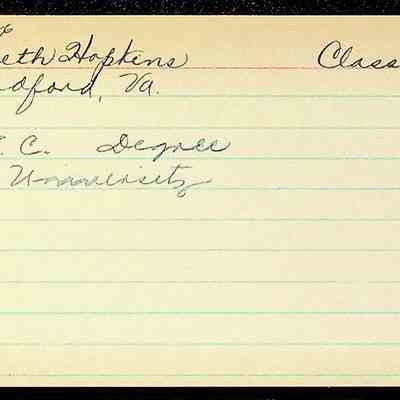 eth Hopkins Class
dford, Va.
. C. Degree
University